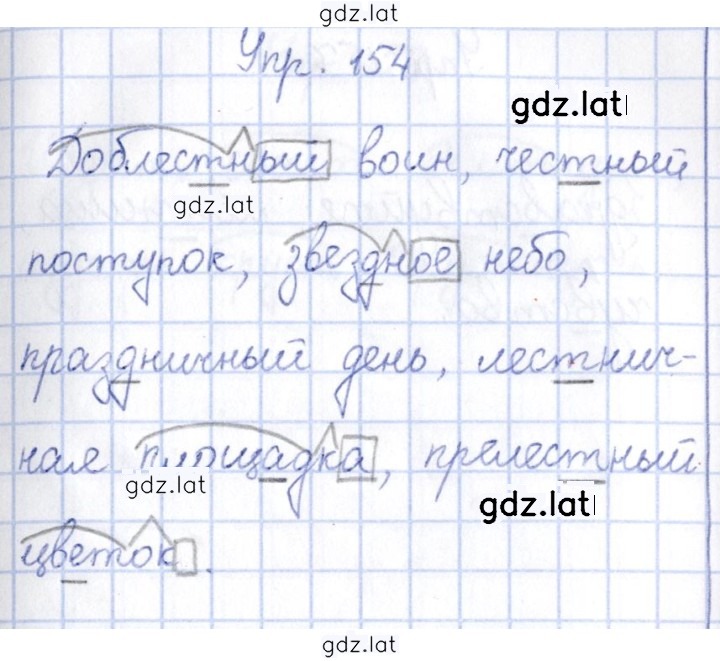 gdz.lat
Упр. 154
gdz.lat
Доблестный воин, честный
gdz.lat
поступок, звездное небо,
праздничный день, лестнич-
ная площадка, прелестный
gdz.lat
gdz.lat
цветок.
gdz.lat